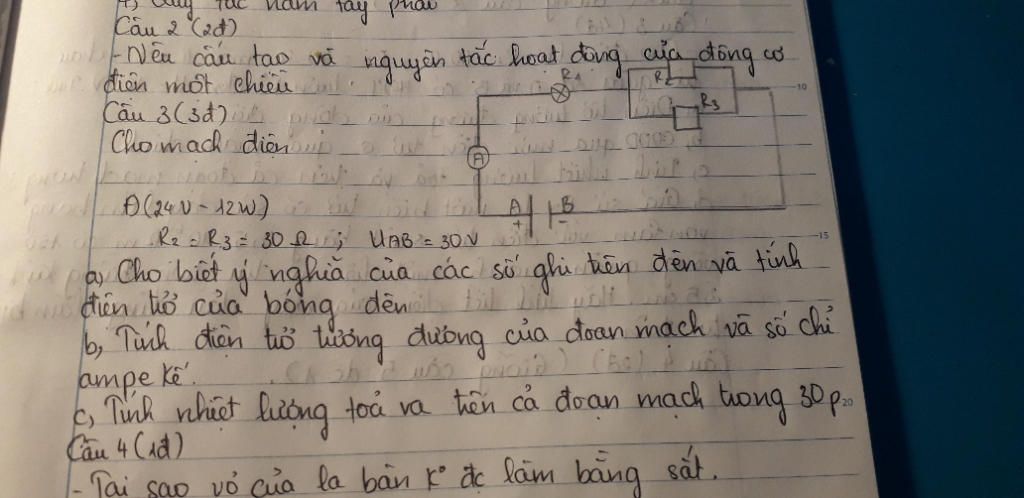 4, Quy tắc nắm tay phải
Câu 2 (2đ)
- Nêu cấu tạo và nguyên tắc hoạt động của động cơ
điện một chiều
Câu 3 (3đ)
Cho mạch điện
R1
R2
R3
A
A
B
+
-
Đ(24V - 12W)
R2 = R3 = 30 Ω ; UAB = 30V
a, Cho biết ý nghĩa của các số ghi trên đèn và tính
điện trở của bóng đèn
b, Tính điện trở tương đương của đoạn mạch và số chỉ
ampe kế.
c, Tính nhiệt lượng toả ra trên cả đoạn mạch trong 30p
Câu 4 (1đ)
- Tại sao vỏ của la bàn k° đc làm bằng sắt.
10
15
20